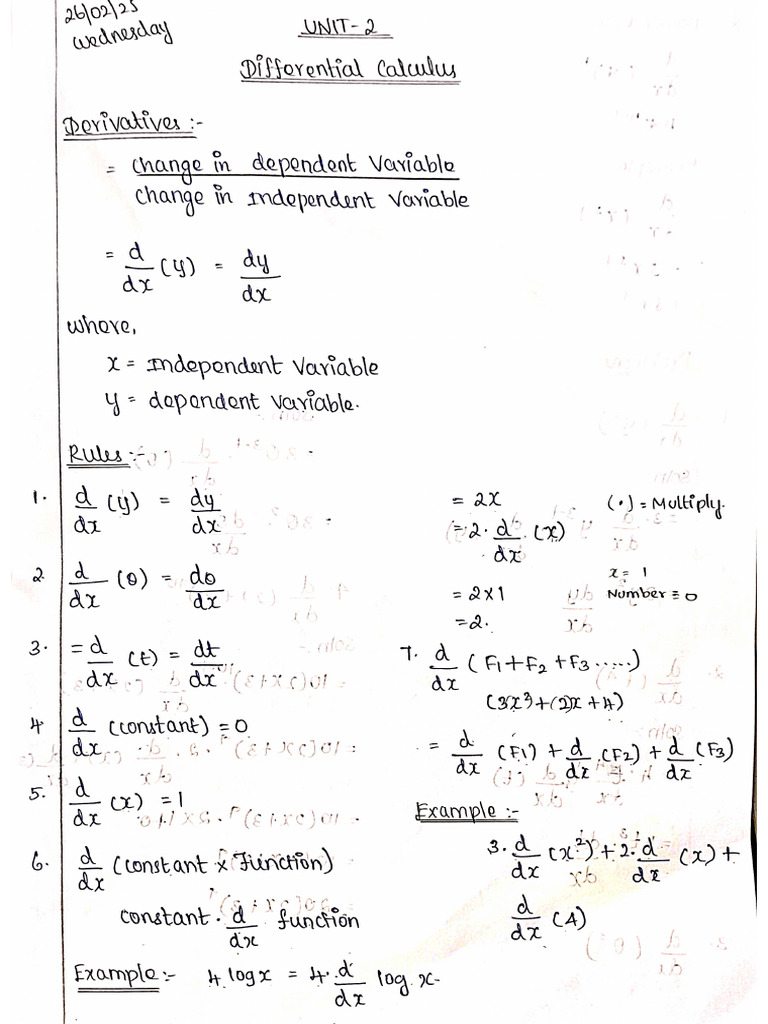 26/02/25
Wednesday
UNIT-2
Differential Calculus
Derivatives :-
= Change in dependent Variable
Change in Independent Variable
= d/dx (y) = dy/dx
where,
x = Independent Variable
y = dependent Variable.
Rules :-
1. d/dx (y) = dy/dx
2 d/dx (θ) = dθ/dx
3. = d/dx (t) = dt/dx
4 d/dx (constant) = 0
5. d/dx (x) = 1
6. d/dx (constant x Function)
constant . d/dx function
Example :- 4 log x = 4. d/dx log x
= 2x (.) = Multiply.
= 2. d/dx (x)
x = 1
= 2x1 Number = 0
= 2.
7. d/dx (F1+F2+F3.....)
(3x³+(2)x+4)
= d/dx (F1) + d/dx (F2) + d/dx (F3)
Example :-
3. d/dx (x²) + 2. d/dx (x) +
d/dx (4)